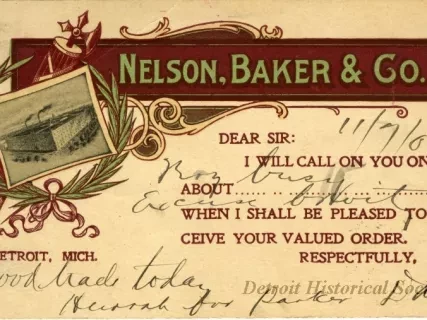 NELSON, BAKER & CO.
11/7/0
DEAR SIR:
I WILL CALL ON YOU ON
busy
ABOUT
Excuse
WHEN I SHALL BE PLEASED TO
CEIVE YOUR VALUED ORDER.
DETROIT, MICH.
RESPECTFULLY,
Made today
Hurrah for Parker
Detroit Historical Soc